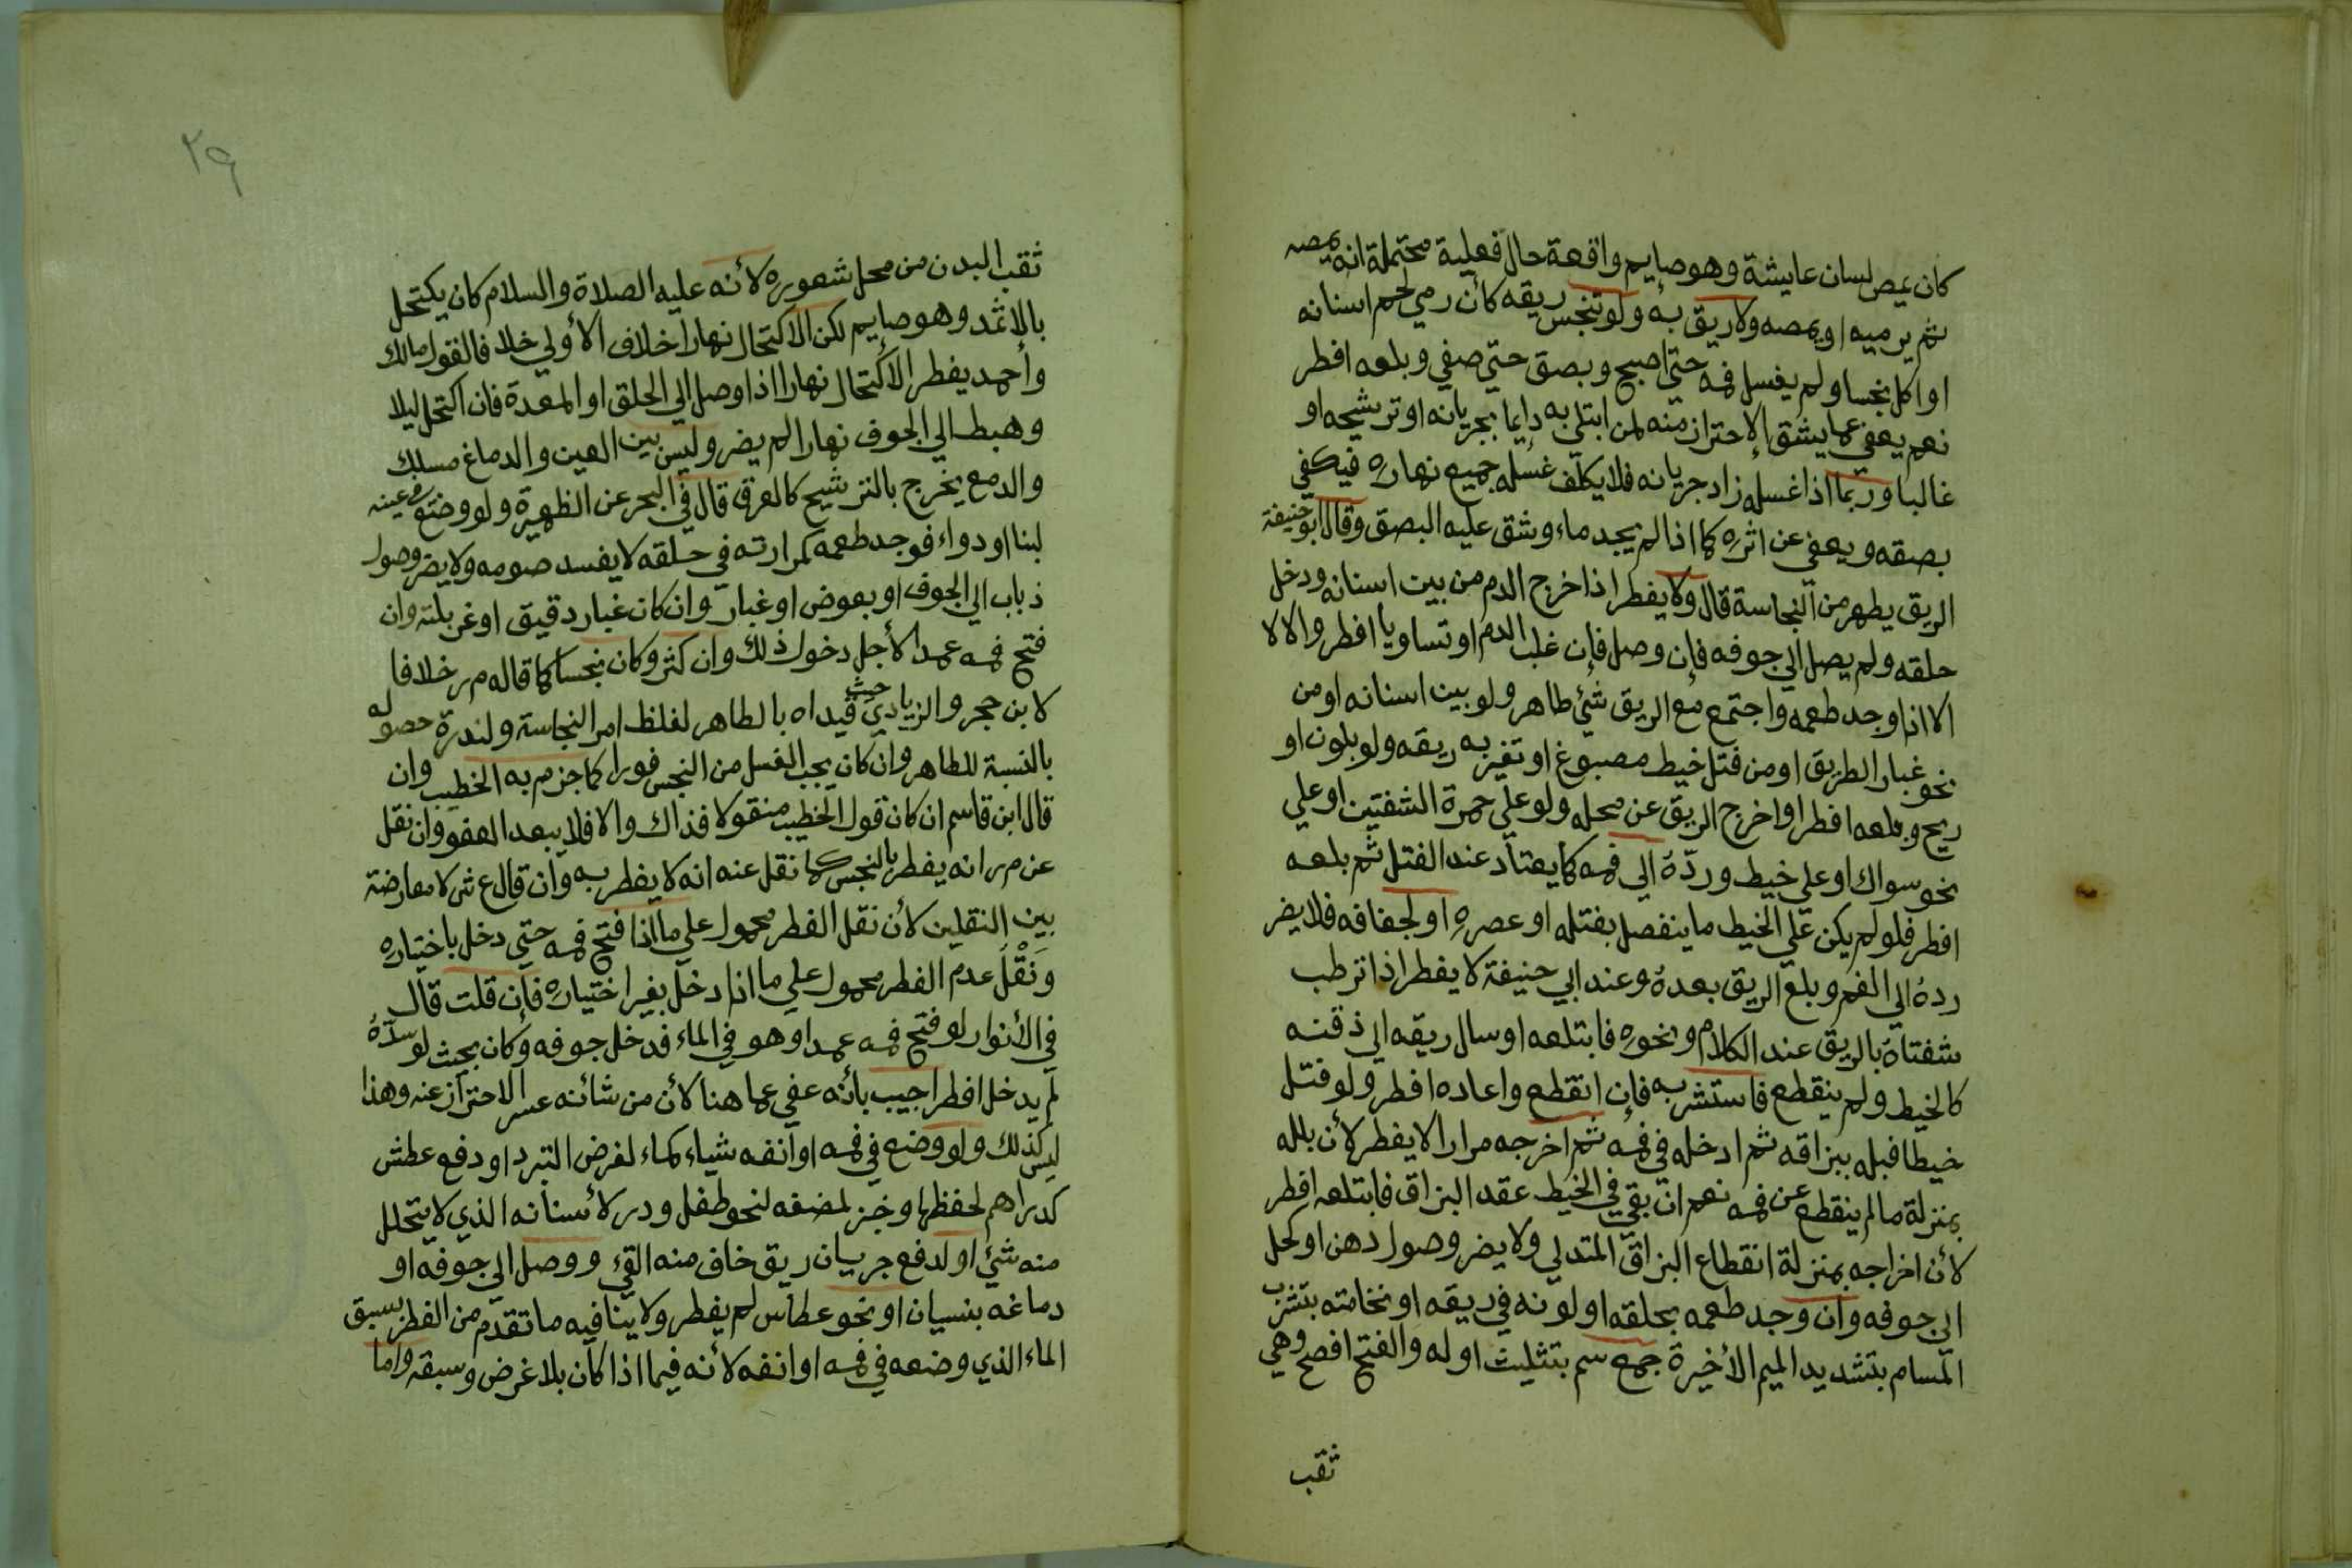 كان يمص لسان عايشة وهو صايم واقعة حال فعلية محتملة انه يمصه
ثم يرميه او يمصه ولا ريق به ولو تنجس ريقه كأن رمي لحم اسنانه
او اكل نجسا ولم يغسل فمه حتي اصبح وبصق حتي صفي وبلعه افطر
نعم يعفي عما يشق الاحتراز منه لمن ابتلي به دايما بجريانه او ترشيحه او
غالبا وربما اذا غسله زاد جريانه فلا يكلف غسله جميع نهاره فيكفي
بصقه ويعفي عن اثره كما اذا لم يجد ماء وشق عليه البصق وقال ابو حنيفة
الريق يطهر من النجاسة قال ولا يفطر اذا خرج الدم من بين اسنانه ودخل
حلقه ولم يصل الي جوفه فإن وصل فإن غلب الدم او تساويا افطر والا لا
الا اذا وجد طعمه واجتمع مع الريق شئ طاهر ولو بين اسنانه او من
نحو غبار الطريق او من فتل خيط مصبوغ او تغير به ريقه ولو بلون او
ريح وبلعه افطر او اخرج الريق عن محله ولو علي حمرة الشفتين او علي
نحو سواك او علي خيط وردّهُ الي فمه كما يعتاد عند الفتل ثم بلعه
افطر فلو لم يكن علي الخيط ما ينفصل بفتله او عصره او لجفافه فلا يضر
ردهُ الي الفم وبلع الريق بعدهُ وعند ابي حنيفة لا يفطر اذا ترطب
شفتاهُ بالريق عند الكلام ونحوه فابتلعه او سال ريقه الي ذقنه
كالخيط ولم ينقطع فاستشر به فإن انقطع واعاده افطر ولو فتل
خيطا فبله ببزاقه ثم ادخله في فمه ثم اخرجه مرارا لا يفطر لأن بلله
بمنزلة ما لم ينقطع عن فمه نعم ان بقي في الخيط عقد البزاق فابتلعه افطر
لأن اخراجه بمنزلة انقطاع البزاق المتدلي ولا يضر وصول دهن او كحل
الي جوفه وان وجد طعمه بحلقه او لونه في ريقه او نخامته بتشرب
المسام بتشديد الميم الأخيرة جمع سم بتثليث اوله والفتح افصح وهي
ثقب
٢٩
ثقب البدن من محل شعوره لأنه عليه الصلاة والسلام كان يكتحل
بالإثمد وهو صايم لكن الاكتحال نهارا خلاف الأولي خلافا لقول مالك
وأحمد يفطر الاكتحال نهارا اذا وصل الي الحلق او المعدة فان اكتحل ليلا
وهبط الي الجوف نهارا لم يضر وليس بين العين والدماغ مسلك
والدمع يخرج بالترشيح كالعرق قال في البحر عن الظهيرة ولو وضع في عينه
لبنا او دواء فوجد طعمه كمرارته في حلقه لا يفسد صومه ولا يضر وصول
ذباب الي الجوف او بعوض او غبار وان كان غبار دقيق او غربلته وان
فتح فمه عمدا لأجل دخول ذلك وان كثر وكان نجسا كما قاله م ر خلافا
لابن حجر والزيادي حيث قيداه بالطاهر لغلظ امر النجاسة ولندرة حصوله
بالنسبة للطاهر وان كان يجب الغسل من النجس فورا كما جزم به الخطيب وان
قال ابن قاسم ان كان قول الخطيب منقولا فذاك والا فلا يبعد العفو وان نقل
عن م ر انه يفطر بالنجس كما نقل عنه انه لا يفطر به وان قال ع ش لا معارضة
بين النقلين لأن نقل الفطر محمول علي ما اذا فتح فمه حتي دخل باختياره
وَنَقْلَ عدم الفطر محمول علي ما اذا دخل بغير اختياره فإن قلت قال
في الأنوار لو فتح فمه عمدا وهو في الماء فدخل جوفه وكان بحيث لو سدّهُ
لم يدخل افطر اجيب بأنه عفي عما هنا لأن من شانه عسر الاحتراز عنه وهذا
ليس كذلك ولو وضع في فمه او انفه شياء كماء لغرض التبرد او دفع عطش
كدراهم لحفظها وخبز لمضغه لنحو طفل ودر لأسنانه الذي لا يتحلل
منه شئ او لدفع جريان ريق خاف منه القئ ووصل الي جوفه او
دماغه بنسيان او نحو عطاس لم يفطر ولا ينافيه ما تقدم من الفطر بسبق
الماء الذي وضعه في فمه او انفه لأنه فيما اذا كان بلا غرض وسبقه واما